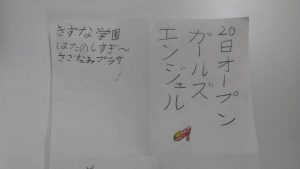 20日オープン
ガールズ
エンジェル
きずな学園
はたのしすぎ〜
さざなみプラザ